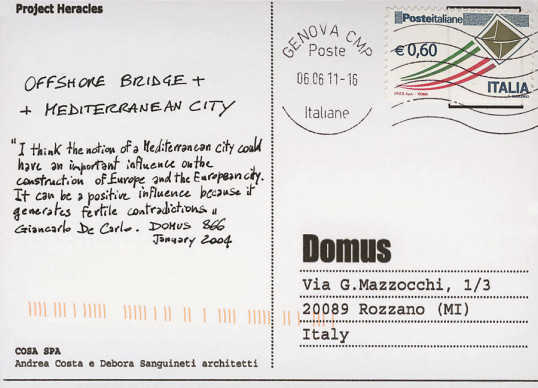 Project Heracles
OFFSHORE BRIDGE +
+ MEDITERRANEAN CITY
"I think the notion of a Mediterranean city could
have an important influence on the
construction of Europe and the European city.
It can be a positive influence because it
generates fertile contradictions"
Giancarlo De Carlo. DOMUS 866
January 2004
COSA SPA
Andrea Costa e Debora Sanguineti architetti
GENOVA CMP
Poste
06.06 11-16
Italiane
Posteitaliane
€ 0,60
ITALIA
Domus
Via G.Mazzocchi, 1/3
20089 Rozzano (MI)
Italy